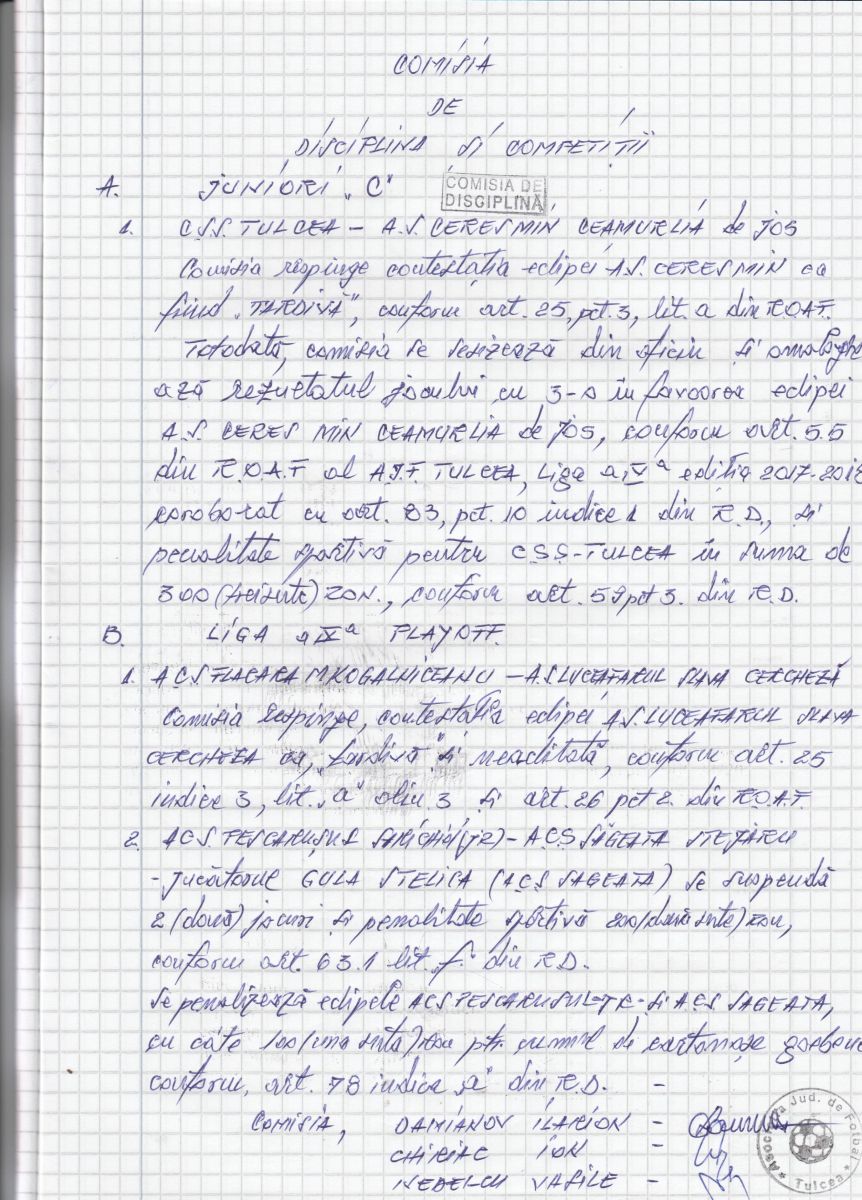 COMISIA
DE
DISCIPLINA SI COMPETITII
A. JUNIORI "C"
COMISIA DE
DISCIPLINĂ
1. C.S.S. TULCEA - A.S. CERES MIN CEAMURLIA de JOS
Comisia respinge contestația echipei A.S. CERES MIN ca
fiind "TARDIVĂ", conform art. 25, pct. 3, lit. a din R.O.A.F.
Totodată, comisia se sesizează din oficiu și omologhe
ază rezultatul jocului cu 3-0 în favoarea echipei
A.S. CERES MIN CEAMURLIA de JOS, conform art. 5.5
din R.O.A.F al A.J.F. TULCEA, Liga a IV a editia 2017-2018
coroborat cu art. 83, pct. 10 indice 1 din R.D., și
penalitate sportivă pentru C.S.S-TULCEA în suma de
300 (treisute) RON., conform art. 59 pct 3. din R.D.
B. LIGA a IV a PLAYOFF.
1. A.C.S. FLACARA M. KOGALNICEANU - A.S. LUCEAFARUL SLAVA CERCHEZĂ
Comisia respinge, contestatia echipei A.S. LUCEAFARUL SLAVA
CERCHEZA ca, "tardivă" și neachitată, conform art. 25
indice 3, lit. "a" alin. 3 și art. 26 pct 2. din R.O.A.F.
2. ACS. PESCARUSUL SARICHIOI (J2) - A.C.S SĂGEATA STEJARU
- Jucătorul GULA STELICA (ACS SAGEATA) se suspendă
2 (două) jocuri și penalitate sportivă 200 (două sute) RON,
conform art. 63.1 lit. "f" din R.D.
Se penalizează echipele ACS PESCARUSUL și A.C.S SAGEATA,
cu câte 100 (una sută) RON ptr. cumul de cartonașe galbene
conform, art. 78 indice "a" din R.D. -
Comisia, DAMIANOV ILARION -
CHIRIAC ION -
NEDELCU VASILE -
Asociația Jud. de Fotbal
Tulcea